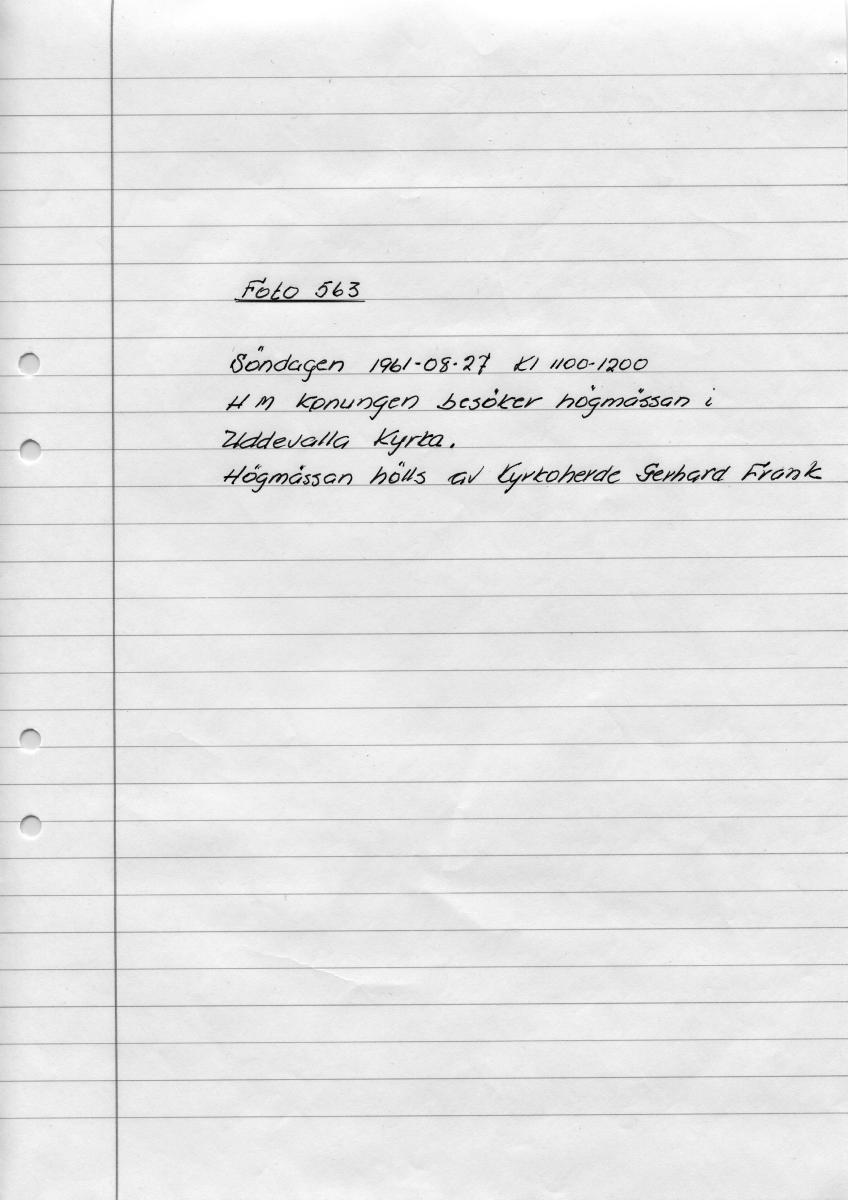 Foto 563
Söndagen 1961-08-27 Kl 1100-1200
H M Konungen besöker högmässan i
Uddevalla Kyrka.
Högmässan hölls av Kyrkoherde Gerhard Frank